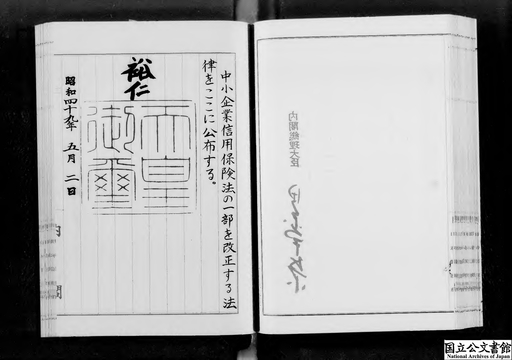 中小企業信用保険法の一部を改正する法
律をここに公布する。
裕仁
天皇
御璽
昭和四十九年 五月 二日
内閣
内閣総理大臣
国立公文書館
National Archives of Japan